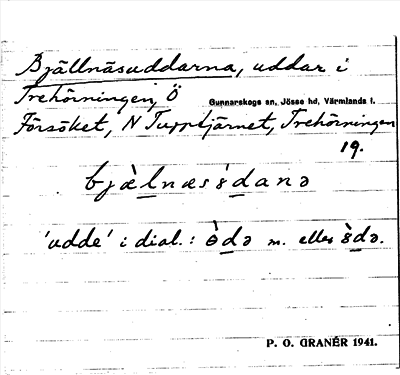 Bjällnäsuddarna, uddar i
Trehörningen, Ö
Gunnarskogs sn, Jösse hd, Värmlands l.
Försöket, N Tupptjärnet, Trehörningen
19.
bjælnæsödanə
'udde' i dial.: ödə m. eller ödə.
P. O. GRANÉR 1941.